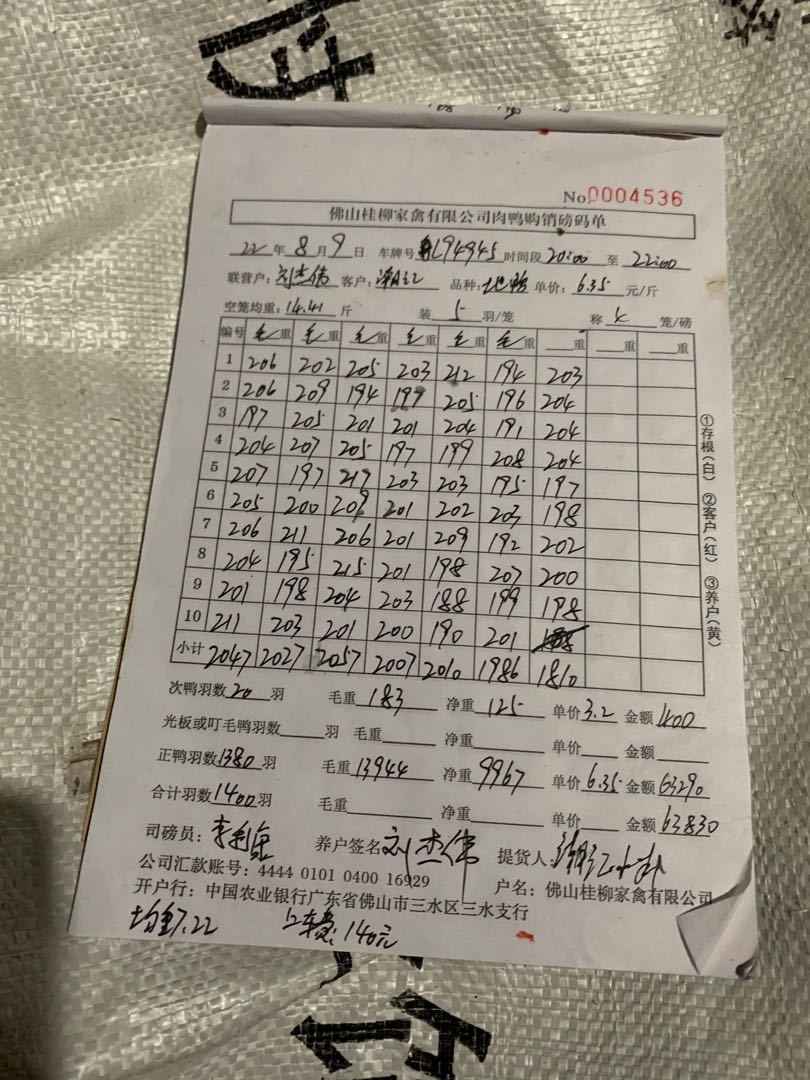 No.0004536
佛山桂柳家禽有限公司肉鸭购销磅码单
22年8月9日 车牌号 L94945 时间段20:00 至 22:00
联营户:刘杰伟 客户: 品种: 单价:6.35 元/斤
空笼均重:14.41 斤 装 5 羽/笼 称 4 笼/磅
编号 毛重 毛重 毛重 毛重 毛重 毛重 重 重 重
1 206 202 205 203 212 194 203
2 206 209 194 199 205 196 204
3 197 205 201 201 204 191 204
4 204 207 205 197 199 208 204
5 207 197 217 203 203 195 197
6 205 200 209 201 202 203 198
7 206 211 206 201 209 192 202
8 204 195 215 201 198 207 200
9 201 198 204 203 188 199 198
10 211 203 201 200 190 201
小计 2047 2027 2057 2007 2010 1986 1810
①存根(白) ②客户(红) ③养户(黄)
次鸭羽数20羽 毛重183 净重125 单价3.2 金额400
光板或叮毛鸭羽数 羽 毛重 净重 单价 金额
正鸭羽数1380羽 毛重13944 净重9967 单价6.35 金额63290
合计羽数1400羽 毛重 净重 单价 金额63830
司磅员: 养户签名刘杰伟 提货人
公司汇款账号:4444 0101 0400 16929 户名:佛山桂柳家禽有限公司
开户行:中国农业银行广东省佛山市三水区三水支行
均重7.22 上车费:140元